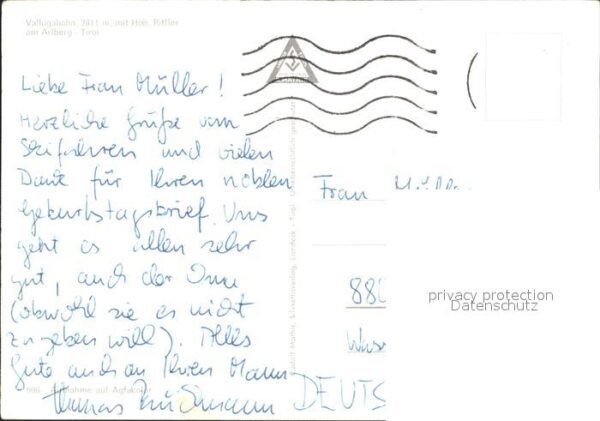 Vallugabahn, 2811 m, mit Hoh. Riffler
am Arlberg - Tirol
Liebe Frau Müller!
Herzliche Grüße vom
Skifahren und vielen
Dank für Ihren noblen
Geburtstagsbrief. Uns
geht es allen sehr
gut, auch der Oma
(obwohl sie es nicht
zugeben will). Alles
Gute auch an Ihren Mann
Thomas
996 Aufnahme auf Agfacolor
Frau
880
DEUTS
privacy protection
Datenschutz